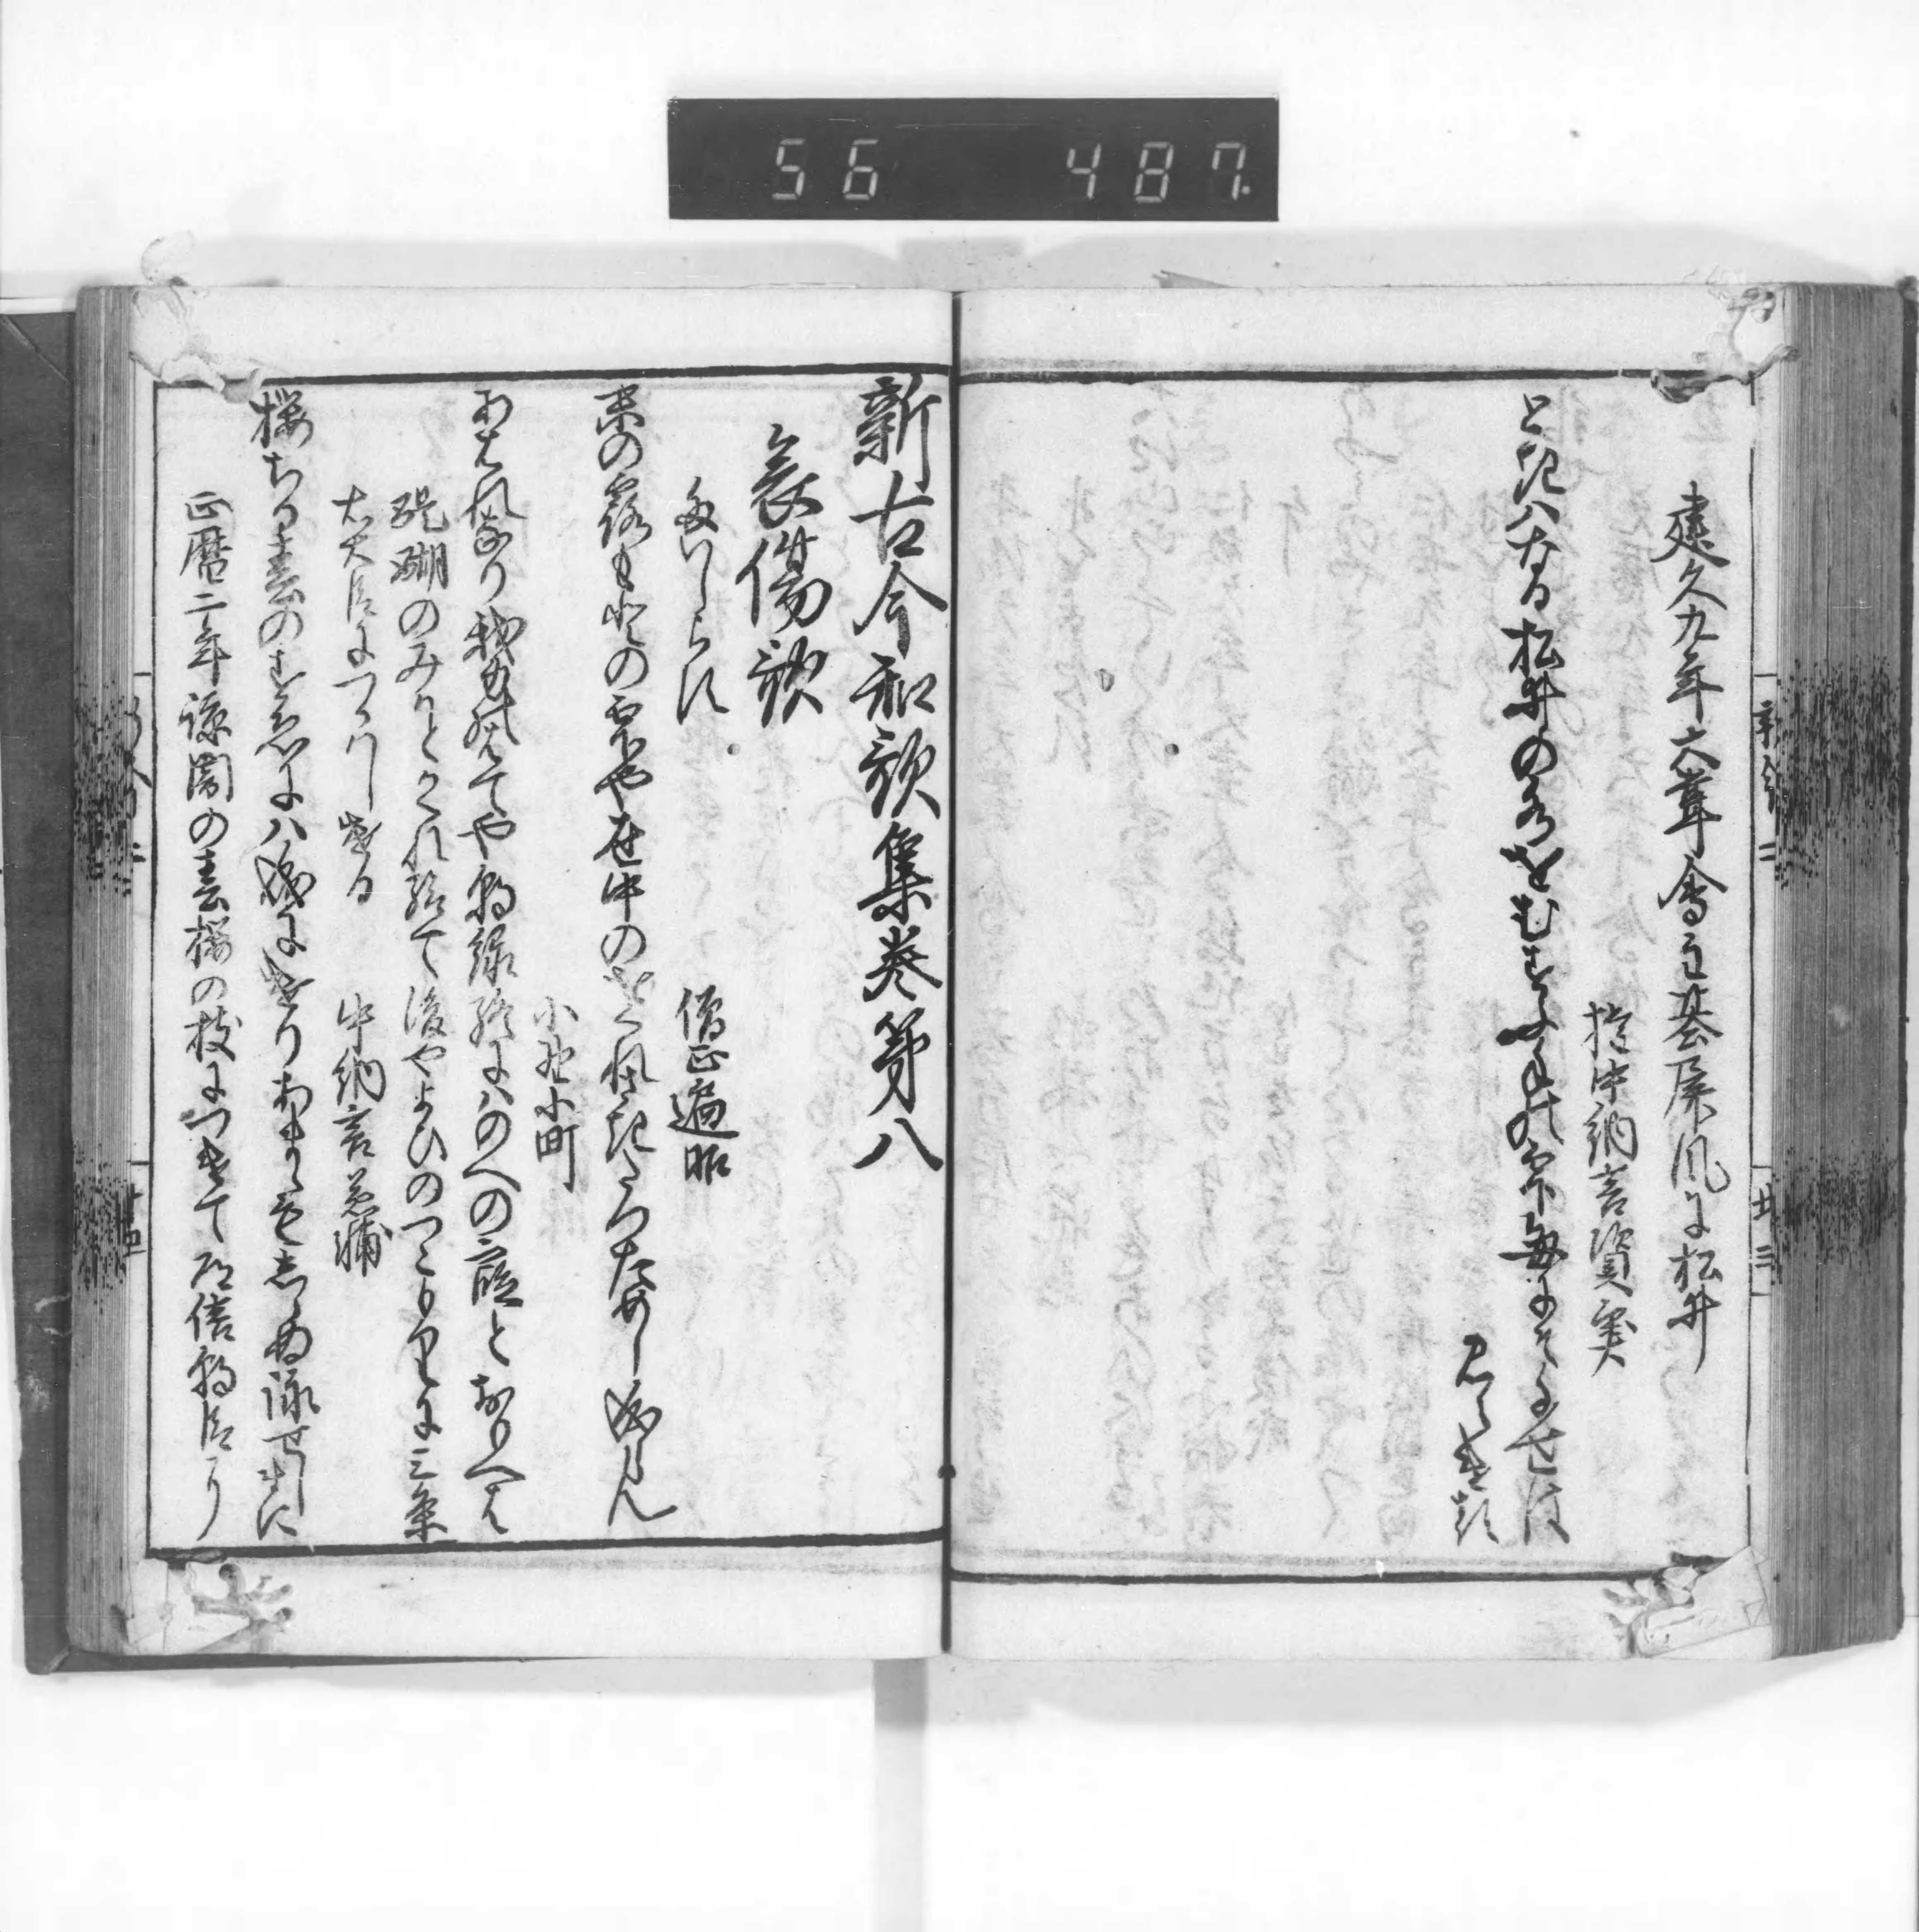 56 487.
建久九年大嘗會主基屏風に松井
権中納言資実
ときはなる松井の水をむすふ手の雫毎にそ千世は
見えける
新古今和歌集巻第八
哀傷歌
題しらす
僧正遍昭
末の露もとの雫や世中のをくれ先たつためし成らん
小野小町
あはれなり我身の果てや浅緑終にはのへの霞とおもへは
醍醐のみかとかくれ給て後やよひのつこもりに三条
右大臣につかはしける
中納言兼輔
桜ちる春のすゑには成にけりあままもしらぬ詠せしまに
正暦二年諒闇の春桜の枝につけて道信朝臣